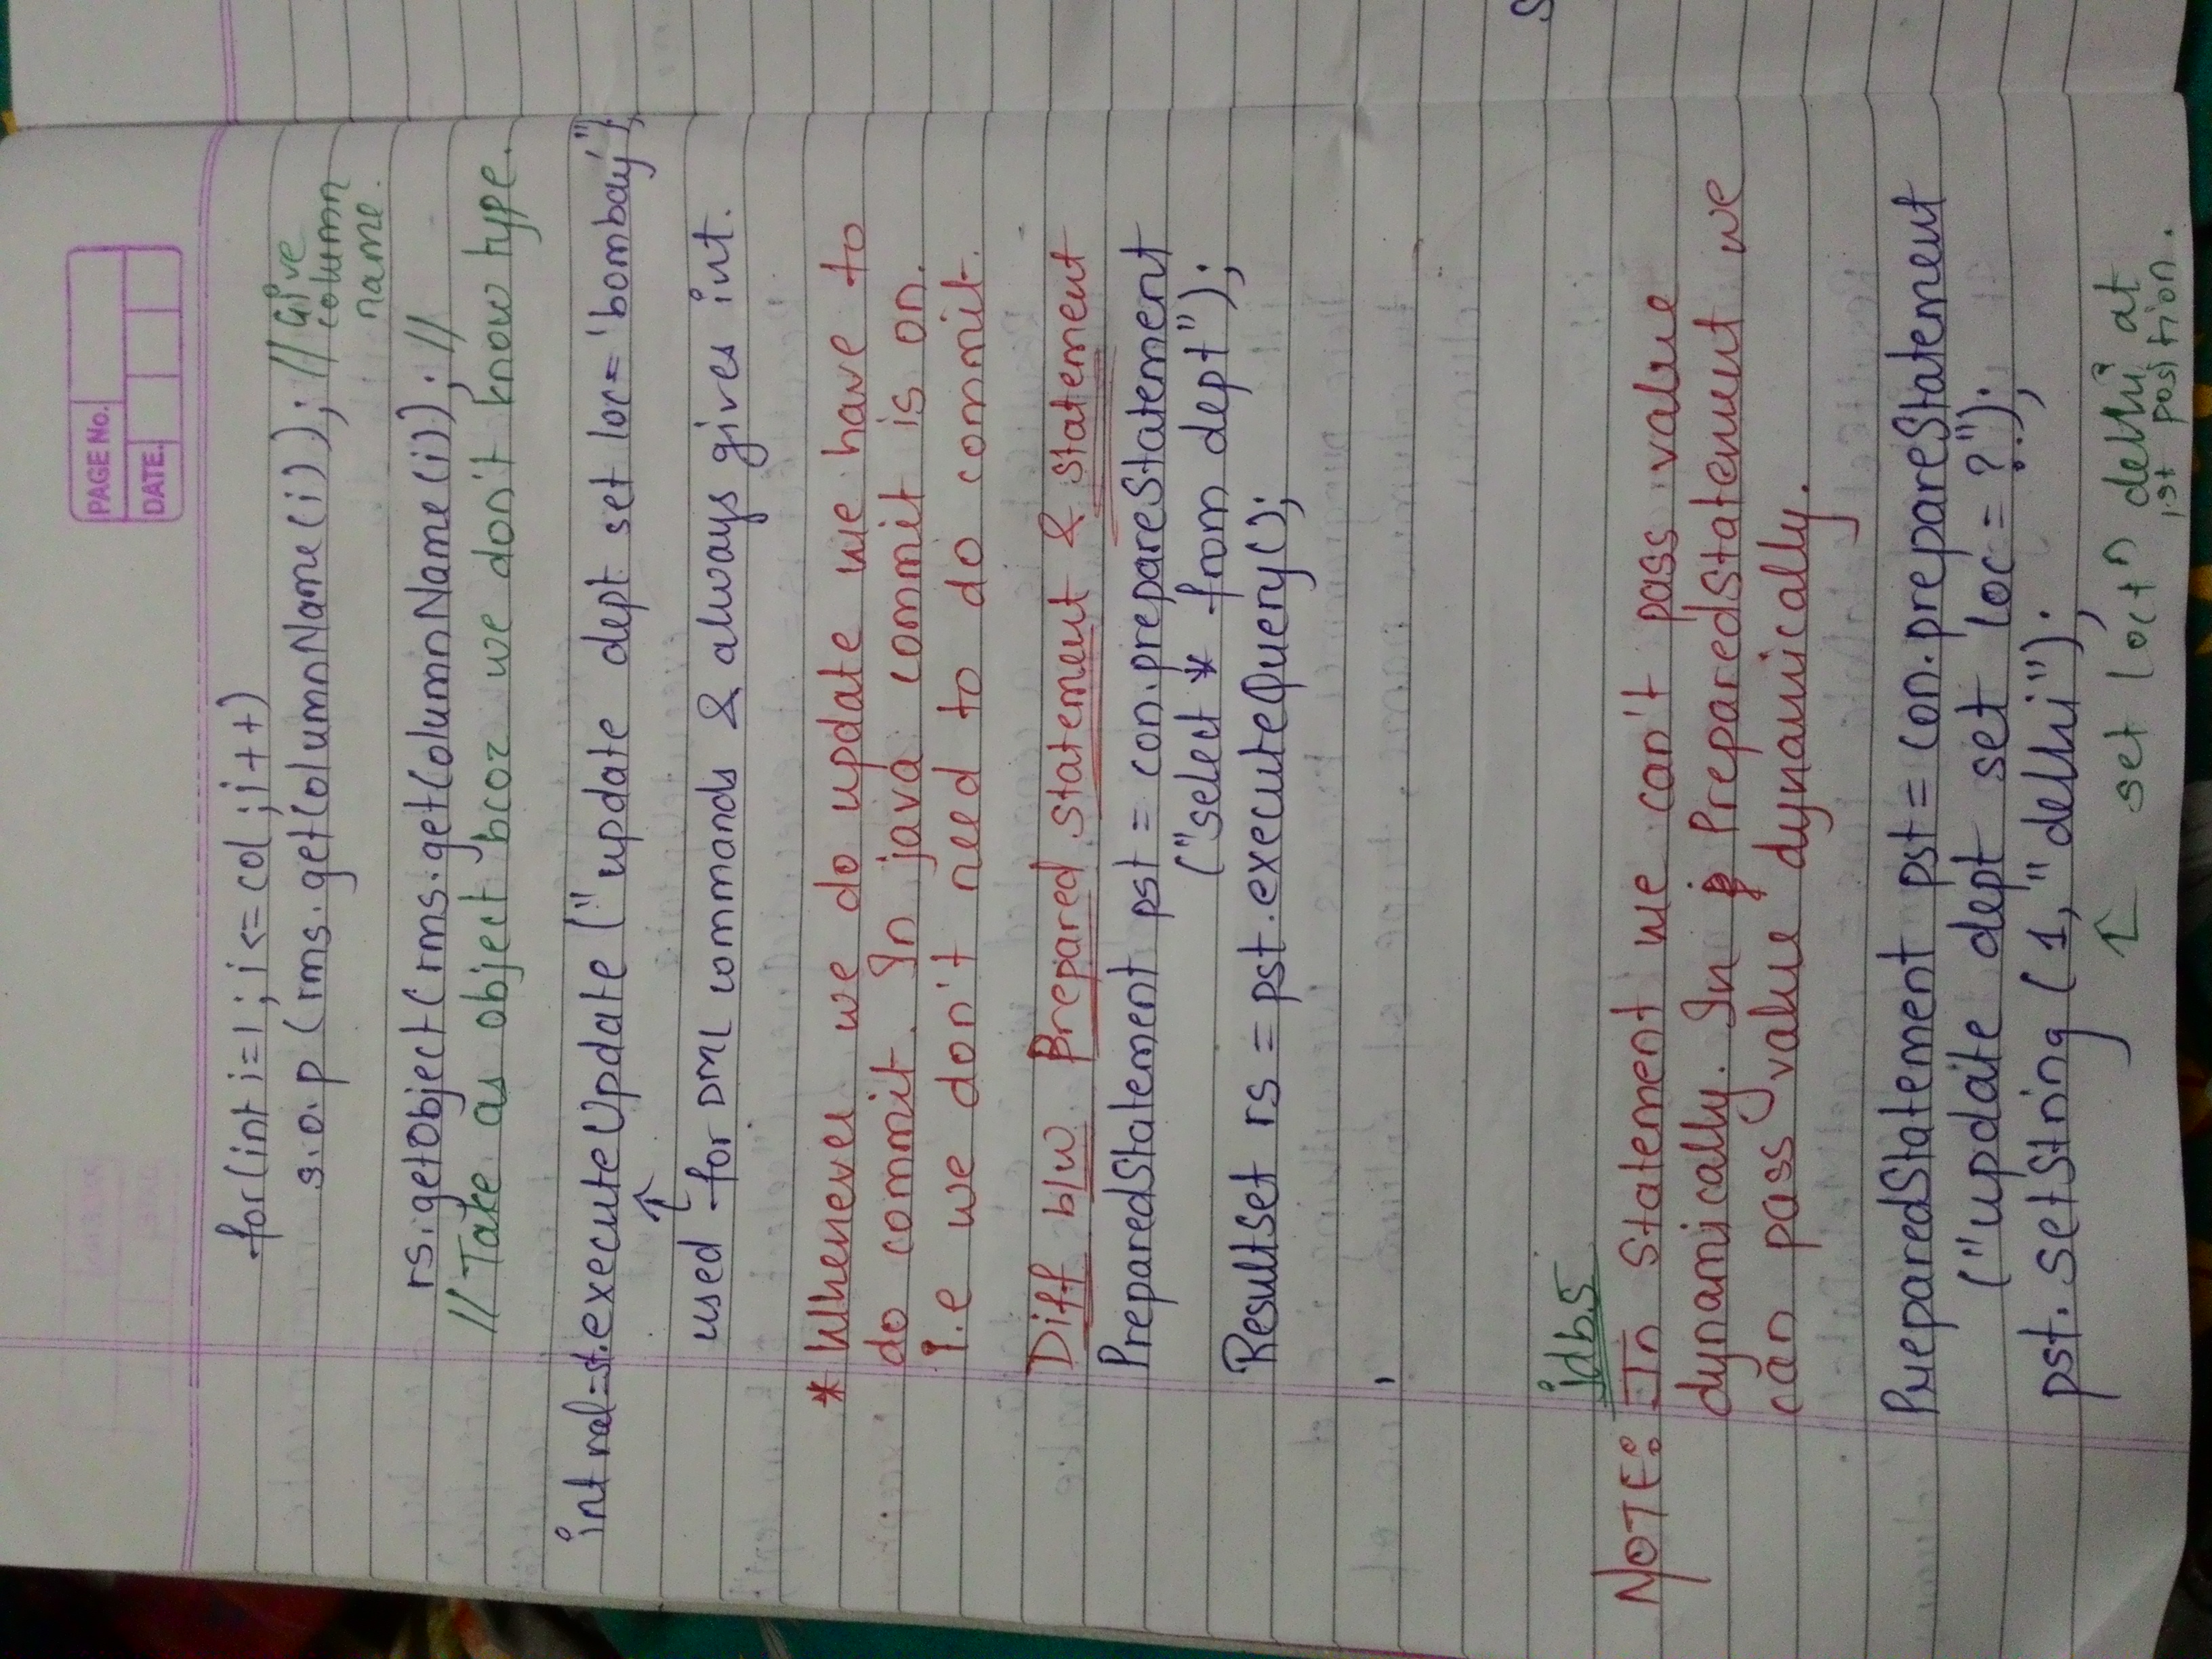 PAGE No.
DATE.
for(int i=1; i<=col; i++)
s.o.p (rms.getColumnName(i)); // Give
column
name.
rs.getObject(rms.getColumnName(i)); //
// Take as object bcoz we don't know type.
int val=st.executeUpdate ("update dept set loc= 'bombay'");
↑
used for DML commands & always gives int.
* Whenever we do update we have to
do commit. In java commit is on.
I.e we don't need to do commit.
Diff b/w Prepared statement & statement
PreparedStatement pst = con.prepareStatement
("select * from dept");
ResultSet rs = pst.executeQuery();
jdb5
NOTE: In Statement we can't pass value
dynamically. In PreparedStatement we
can pass value dynamically.
PreparedStatement pst = con.prepareStatement
("update dept set loc = ?");
pst.setString (1, "delhi");
↑ set loctn delhi at
1st position.